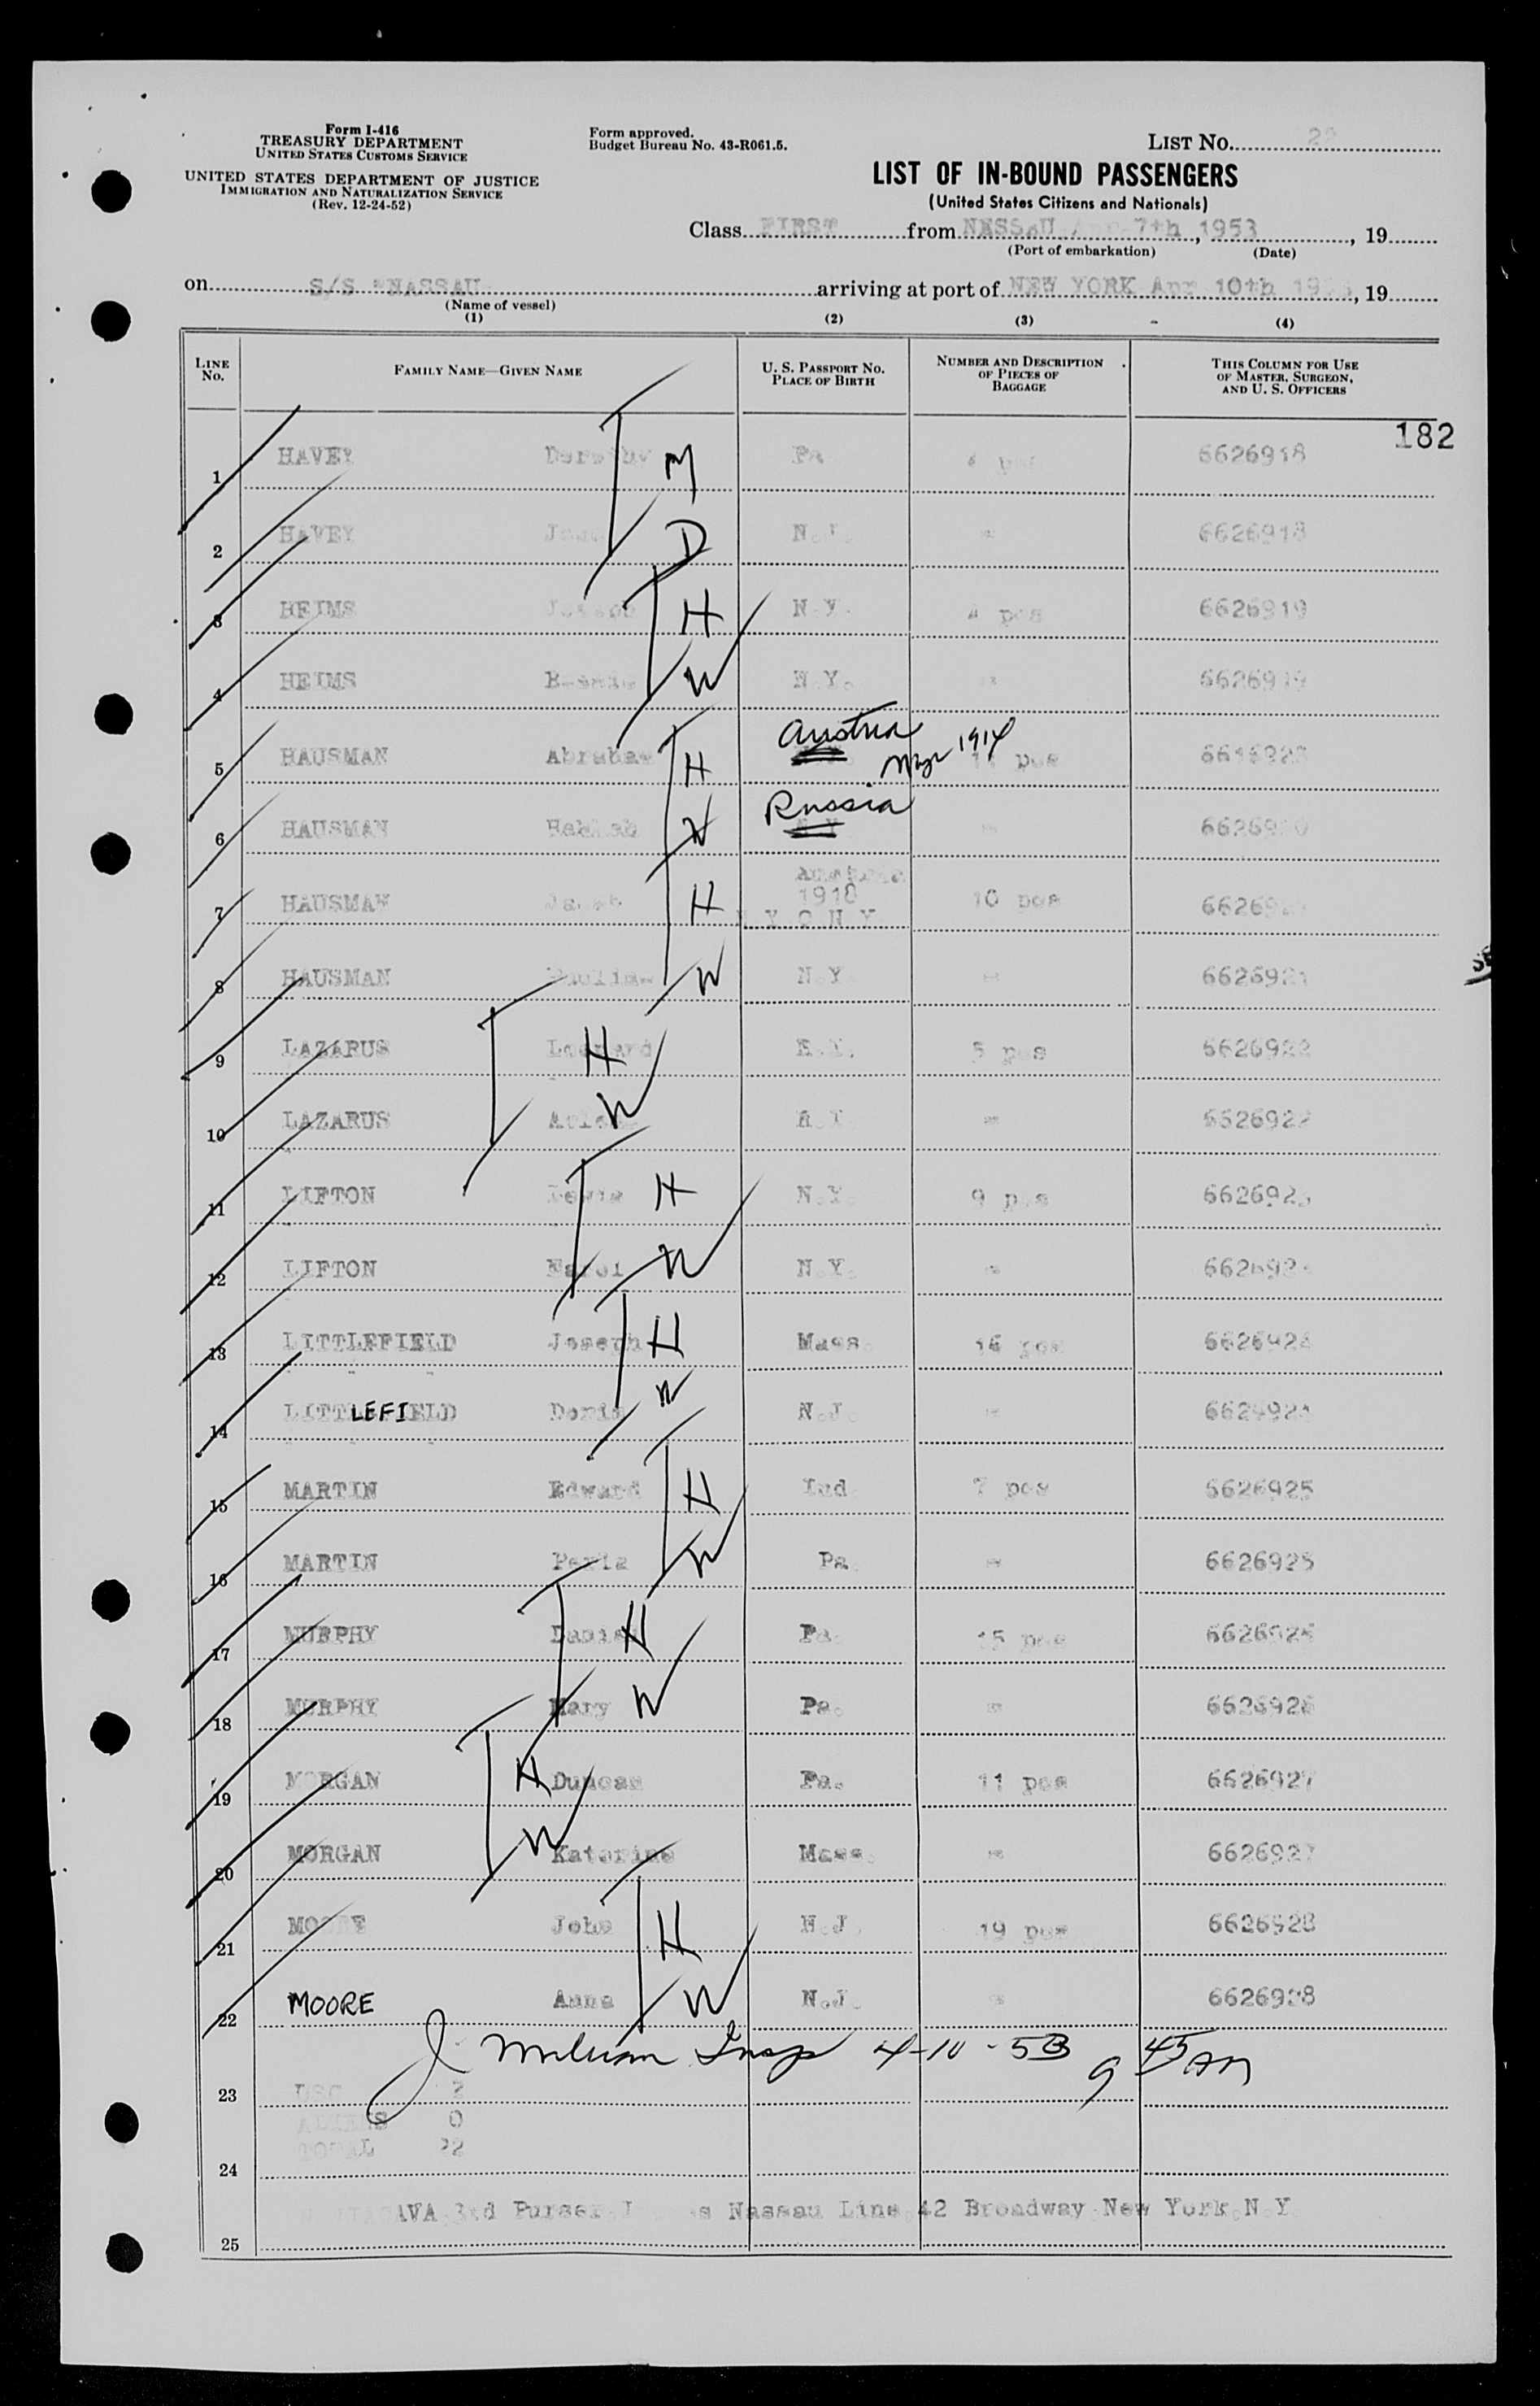 Form I-416
TREASURY DEPARTMENT
UNITED STATES CUSTOMS SERVICE
UNITED STATES DEPARTMENT OF JUSTICE
IMMIGRATION AND NATURALIZATION SERVICE
(Rev. 12-24-52)
Form approved.
Budget Bureau No. 43-R061.5.
LIST No. 22
LIST OF IN-BOUND PASSENGERS
(United States Citizens and Nationals)
Class FIRST from NASSAU Apr 7th, 1953, 19
(Port of embarkation) (Date)
on S/S "NASSAU arriving at port of NEW YORK Apr 10th 1953, 19
(Name of vessel)
(1) (2) (3) (4)
LINE No. FAMILY NAME—GIVEN NAME U. S. PASSPORT No. PLACE OF BIRTH NUMBER AND DESCRIPTION OF PIECES OF BAGGAGE THIS COLUMN FOR USE OF MASTER, SURGEON, AND U. S. OFFICERS
182
1 HAVEY Dorothy M Pa 6626918
2 HAVEY D N.J. 6626918
3 HEIMS H N.Y. 4 pcs 6626919
4 HEIMS W N.Y. 6626919
5 HAUSMAN Abraham H Austria 1914 11 pcs
6 HAUSMAN Hannah W Russia N Y 6626920
7 HAUSMAN Jacob H 1918 N.Y.C N.Y 10 pcs
8 HAUSMAN Pauline W N.Y 6626921
9 LAZARUS Leonard H N.Y. 5 pcs 6626922
10 LAZARUS W 6626922
11 LIFTON Lewis H N.Y. 9 pcs
12 LIFTON W N.Y.
13 LITTLEFIELD Joseph H Mass. 16 pcs 6626924
14 LITTLEFIELD Doris W N.J.
15 MARTIN Edward H Ind 7 pcs 6626925
16 MARTIN W Pa. 6626925
17 MURPHY Daniel H Pa. 15 pcs 6626926
18 MURPHY Mary W Pa. 6626926
19 MORGAN H Duncan Pa. 11 pcs 6626927
20 MORGAN W Katerine Mass. 6626927
21 MOORE John H N.J. 19 pcs 6626928
22 MOORE Anna W N.J. 6626928
J Insp 4-10-53 9 45 AM
23 USC
ALIENS 0
TOTAL 22
24
3rd Purser Nassau Line 42 Broadway New York N Y
25